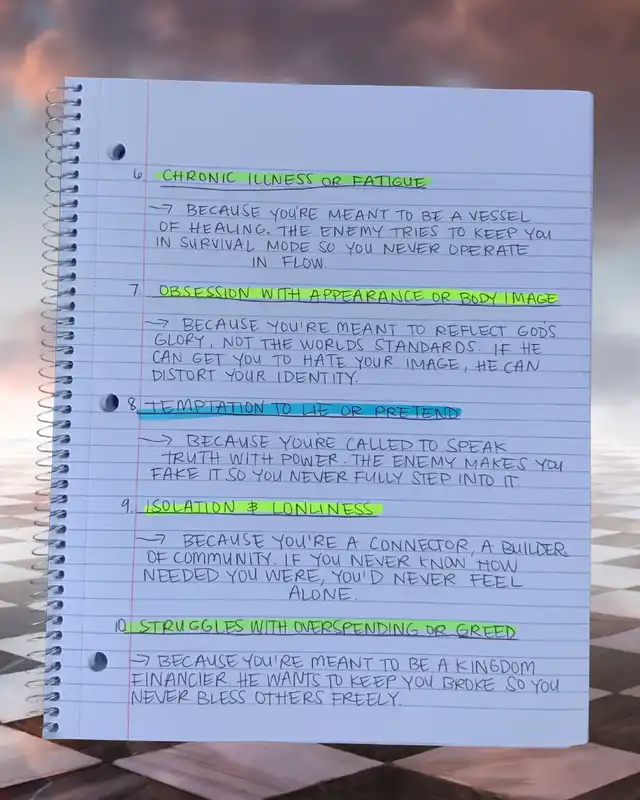 6. CHRONIC ILLNESS OR FATIGUE
→ BECAUSE YOU'RE MEANT TO BE A VESSEL
OF HEALING. THE ENEMY TRIES TO KEEP YOU
IN SURVIVAL MODE SO YOU NEVER OPERATE
IN FLOW.
7. OBSESSION WITH APPEARANCE OR BODY IMAGE
→ BECAUSE YOU'RE MEANT TO REFLECT GODS
GLORY, NOT THE WORLDS STANDARDS. IF HE
CAN GET YOU TO HATE YOUR IMAGE, HE CAN
DISTORT YOUR IDENTITY.
8. TEMPTATION TO LIE OR PRETEND
→ BECAUSE YOURE CALLED TO SPEAK
TRUTH WITH POWER. THE ENEMY MAKES YOU
FAKE IT SO YOU NEVER FULLY STEP INTO IT
9. ISOLATION & LONLINESS
→ BECAUSE YOU'RE A CONNECTOR, A BUILDER
OF COMMUNITY. IF YOU NEVER KNOW HOW
NEEDED YOU WERE, YOU'D NEVER FEEL
ALONE.
10. STRUGGLES WITH OVERSPENDING OR GREED
→ BECAUSE YOU'RE MEANT TO BE A KINGDOM
FINANCIER. HE WANTS TO KEEP YOU BROKE SO YOU
NEVER BLESS OTHERS FREELY.